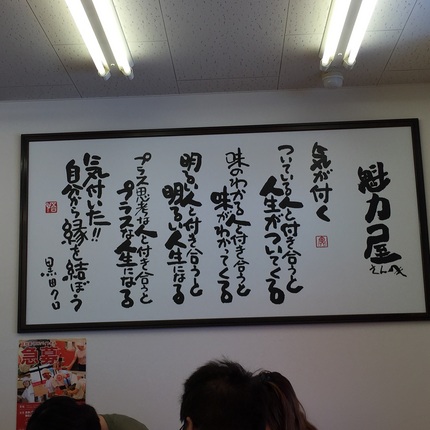 魁力屋
さん江
気が付く
ついている人と付き合うと
人生がついてくる
味のわかる人と付き合うと
味がわかってくる
明るい人と付き合うと
明るい人生になる
プラス思考な人と付き合うと
プラスな人生になる
気付いた!!
自分から縁を結ぼう
黒田クロ
急募